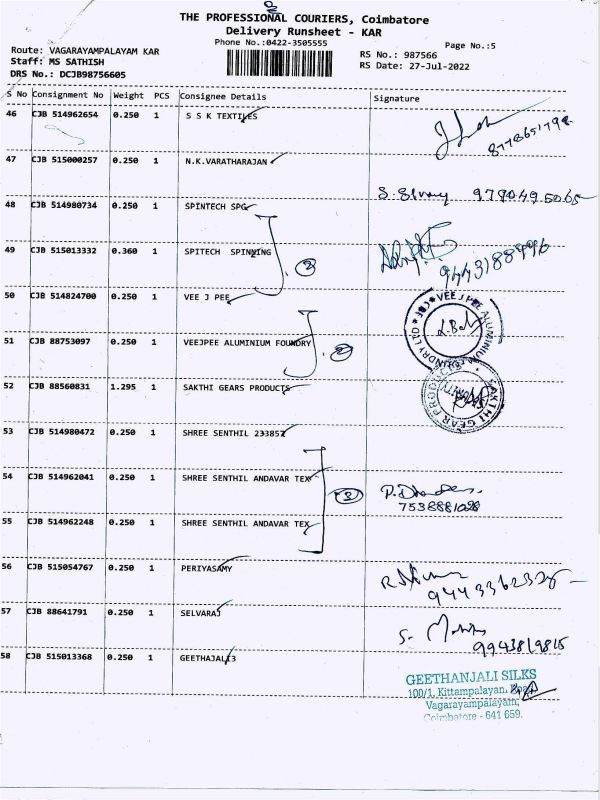 THE PROFESSIONAL COURIERS, Coimbatore
Delivery Runsheet - KAR
Phone No.:0422-3505555
Page No.:5
Route: VAGARAYAMPALAYAM KAR
Staff: MS SATHISH
DRS No.: DCJB98756605
RS No.: 987566
RS Date: 27-Jul-2022
S No Consignment No Weight PCS Consignee Details Signature
46 CJB 514962654 0.250 1 S S K TEXTILES
8778651798
47 CJB 515000257 0.250 1 N.K.VARATHARAJAN
48 CJB 514980734 0.250 1 SPINTECH SPG
49 CJB 515013332 0.360 1 SPITECH SPINNING
2
50 CJB 514824700 0.250 1 VEE J PEE
51 CJB 88753097 0.250 1 VEEJPEE ALUMINIUM FOUNDRY
2
VEEJPEE ALUMINIUM FOUNDRY LTD
52 CJB 88560831 1.295 1 SAKTHI GEARS PRODUCTS
SAKTHI GEAR PRODUCTS
53 CJB 514980472 0.250 1 SHREE SENTHIL 233857
54 CJB 514962041 0.250 1 SHREE SENTHIL ANDAVAR TEX
3
7538881028
55 CJB 514962248 0.250 1 SHREE SENTHIL ANDAVAR TEX
56 CJB 515054767 0.250 1 PERIYASAMY
57 CJB 88641791 0.250 1 SELVARAJ
9943819815
58 CJB 515013368 0.250 1 GEETHAJALI3
GEETHANJALI SILKS
100/1, Kittampalayan,
Vagarayampalayam,
Coimbatore - 641 659.